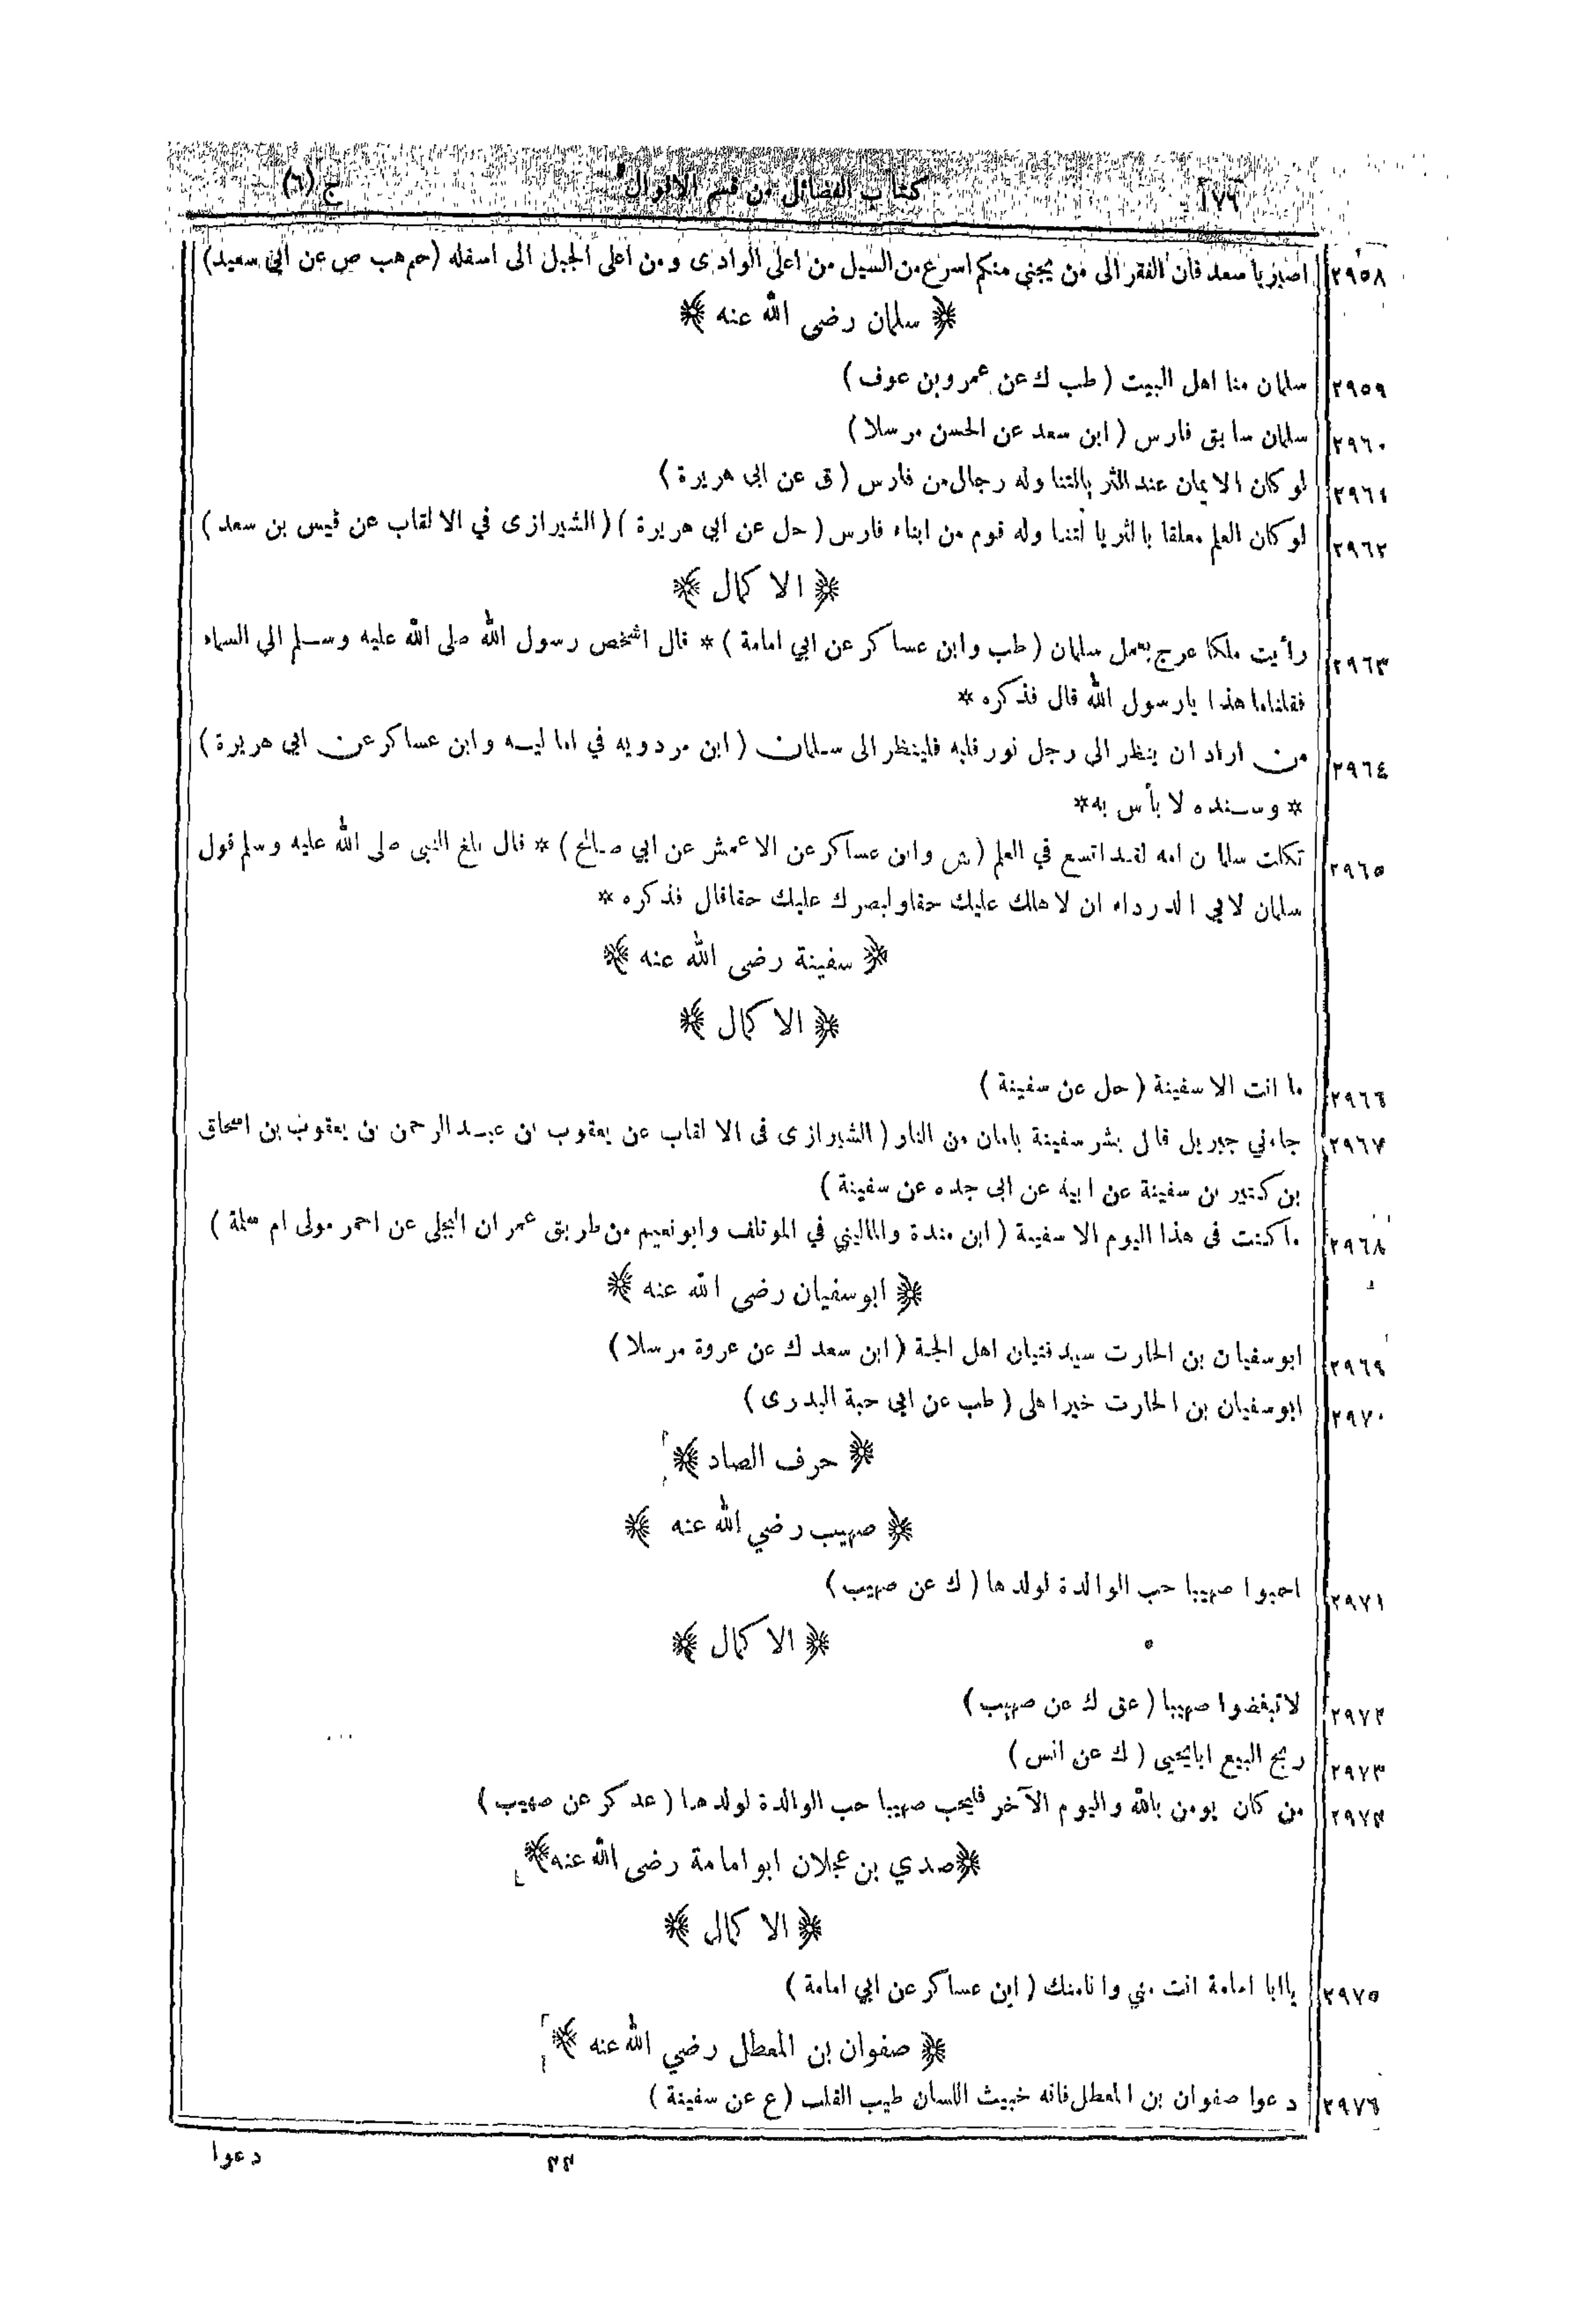 ١٧٦ كتاب الفضائل من قسم الاقوال ج (٦)
٢٩٥٨ اصبر يا سعد فان الفقر الى من يحبني منكم اسرع من السيل من اعلى الوادى ومن اعلى الجبل الى اسفله (حم هب ص عن ابي سعيد)
﴿ سلمان رضى الله عنه ﴾
٢٩٥٩ سلمان منا اهل البيت ( طب ك عن عمرو بن عوف )
٢٩٦٠ سلمان سابق فارس ( ابن سعد عن الحسن مرسلا )
٢٩٦١ لو كان الايمان عند الثريا لتناوله رجال من فارس ( ق عن ابى هريرة )
٢٩٦٢ لو كان العلم معلقا بالثريا لتناوله قوم من ابناء فارس ( حل عن ابى هريرة ) ( الشيرازى في الالقاب عن قيس بن سعد )
﴿ الاكمال ﴾
٢٩٦٣ رأيت ملكا عرج بعمل سلمان ( طب وابن عساكر عن ابي امامة ) * قال اشخص رسول الله صلى الله عليه وسلم الى السماء
فقلنا ما هذا يا رسول الله قال فذكره *
٢٩٦٤ من اراد ان ينظر الى رجل نور قلبه فلينظر الى سلمان ( ابن مردويه في اماليه وابن عساكر عن ابي هريرة )
* وسنده لا بأس به *
٢٩٦٥ ثكلت سلمان امه لقد اتسع في العلم ( ش وابن عساكر عن الاعمش عن ابي صالح ) * قال بلغ النبى صلى الله عليه وسلم قول
سلمان لابي الدرداء ان لاهلك عليك حقا ولبصرك عليك حقا قال فذكره *
﴿ سفينة رضى الله عنه ﴾
﴿ الاكمال ﴾
٢٩٦٦ ما انت الا سفينة ( حل عن سفينة )
٢٩٦٧ جاءني جبريل قال بشر سفينة بامان من النار ( الشيرازى فى الالقاب عن يعقوب بن عبد الرحمن بن يعقوب بن اسحاق
بن كثير بن سفينة عن ابيه عن ابى جده عن سفينة )
٢٩٦٨ ما كنت فى هذا اليوم الا سفينة ( ابن مندة والماليني في الموتلف وابو نعيم من طريق عمران البجلى عن احمر مولى ام سلمة )
﴿ ابو سفيان رضى الله عنه ﴾
٢٩٦٩ ابو سفيان بن الحارث سيد فتيان اهل الجنة ( ابن سعد ك عن عروة مرسلا )
٢٩٧٠ ابو سفيان بن الحارث خير اهلى ( طب عن ابي حبة البدرى )
﴿ حرف الصاد ﴾
﴿ صهيب رضي الله عنه ﴾
٢٩٧١ احبوا صهيبا حب الوالدة لولدها ( ك عن صهيب )
﴿ الاكمال ﴾
٢٩٧٢ لا تبغضوا صهيبا ( عق ك عن صهيب )
٢٩٧٣ ربح البيع ابا يحيى ( ك عن انس )
٢٩٧٤ من كان يومن بالله واليوم الآخر فليحب صهيبا حب الوالدة لولدها ( عد كر عن صهيب )
﴿ صدي بن عجلان ابو امامة رضى الله عنه ﴾
﴿ الاكمال ﴾
٢٩٧٥ يا ابا امامة انت مني وانا منك ( ابن عساكر عن ابي امامة )
﴿ صفوان بن المعطل رضي الله عنه ﴾
٢٩٧٦ دعوا صفوان بن المعطل فانه خبيث اللسان طيب القلب ( ع عن سفينة )
٢٢ دعوا